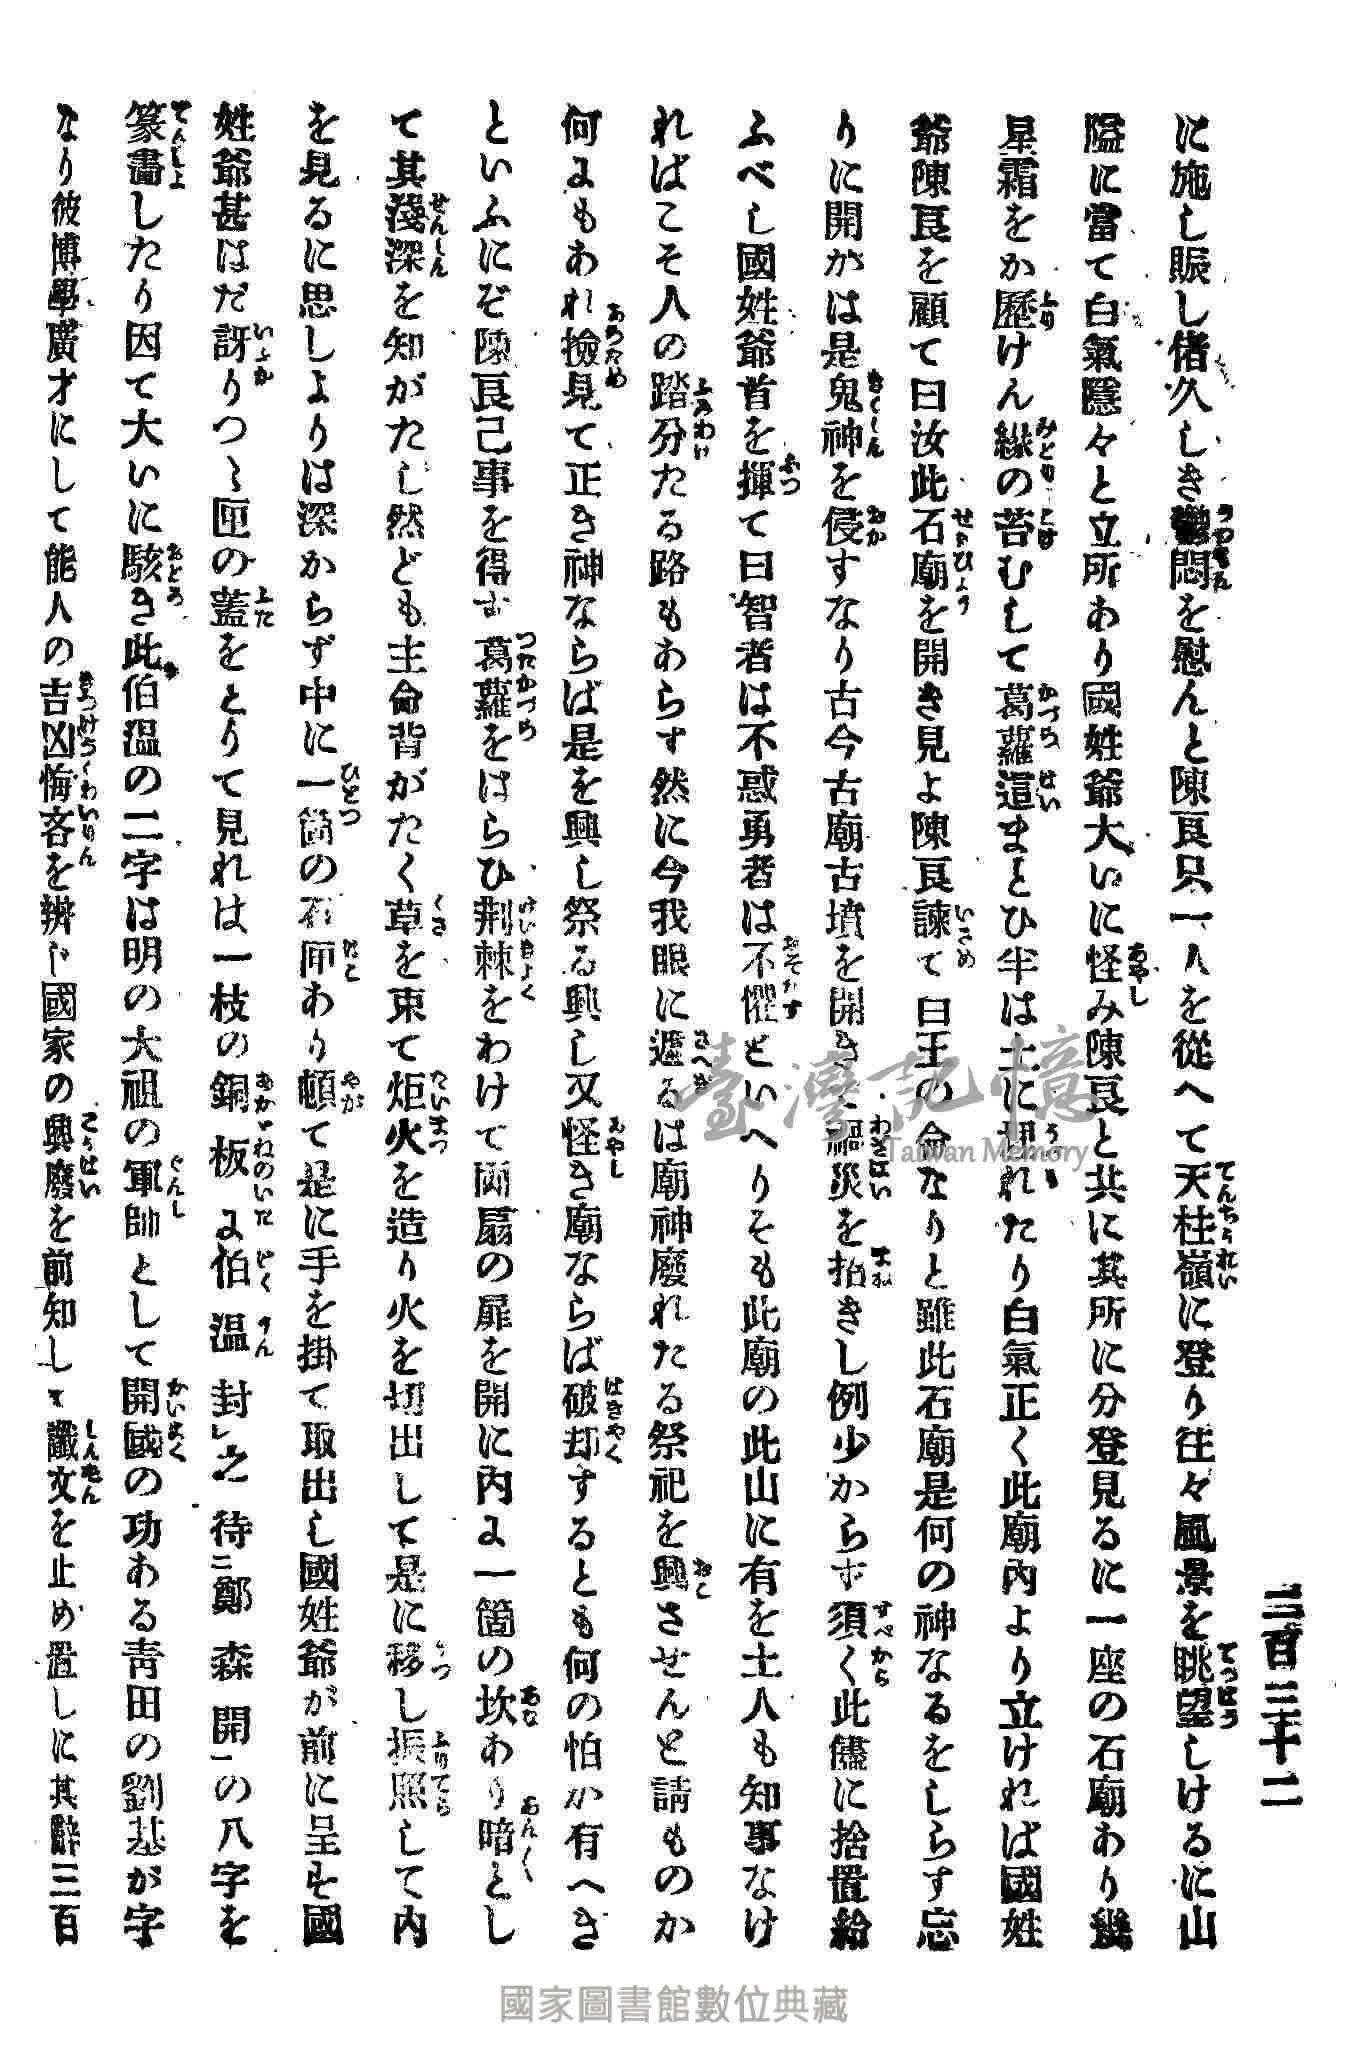 三百三十二
に施し賑し偖久しき鬱悶を慰んと陳良只一人を從へて天柱嶺に登り往々風景を眺望しけるに山
隘に當て白氣隱々と立所あり國姓爺大いに怪み陳良と共に其所に分登見るに一座の石廟あり幾
星霜をか歷けん綠の苔むして葛蘿這まとひ半は土に埋れたり白氣正く此廟內より立ければ國姓
爺陳良を顧て曰汝此石廟を開き見よ陳良諫て曰王の命なりと雖此石廟是何の神なるをしらす忘
りに開かは是鬼神を侵すなり古今古廟古墳を開きて禍災を招きし例少からす須く此儘に捨置給
ふべし國姓爺首を揮て曰智者は不惑勇者は不懼といへりそも此廟の此山に有を土人も知事なけ
ればこそ人の踏分たる路もあらす然に今我眼に遮るは廟神廢れたる祭祀を興させんと請ものか
何にもあれ撿見て正き神ならば是を興し祭る興し又怪き廟ならば破却するとも何の怕か有へき
といふにぞ陳良己事を得ず葛蘿をはらひ荆棘をわけて両扇の扉を開に內に一箇の坎あり暗とし
て其淺深を知がたし然ども主命背がたく草を束て炬火を造り火を切出して是に移し振照して內
を見るに思しよりは深からず中に一箇の石匣あり頓て是に手を掛て取出し國姓爺が前に呈す國
姓爺甚はだ訝りつゝ匣の蓋をとりて見れは一枝の銅板に伯溫封㆑之待㆓鄭森開㆒の八字を
篆書したり因て大いに駭き此伯溫の二字は明の大祖の軍師として開國の功ある靑田の劉基が字
なり彼博學廣才にして能人の吉凶悔吝を辨じ國家の興廢を前知して讖文を止め置しに其辭三百
臺灣記憶
Taiwan Memory
國家圖書館數位典藏